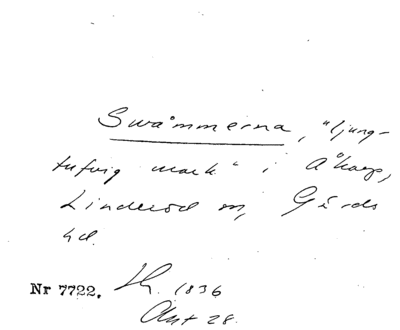 Swåmmerna, "ljung-
tufvig mark" i Åkarp,
Linderöd sn, Gärds
hd.
Nr 7722. 1836
Akt 28.